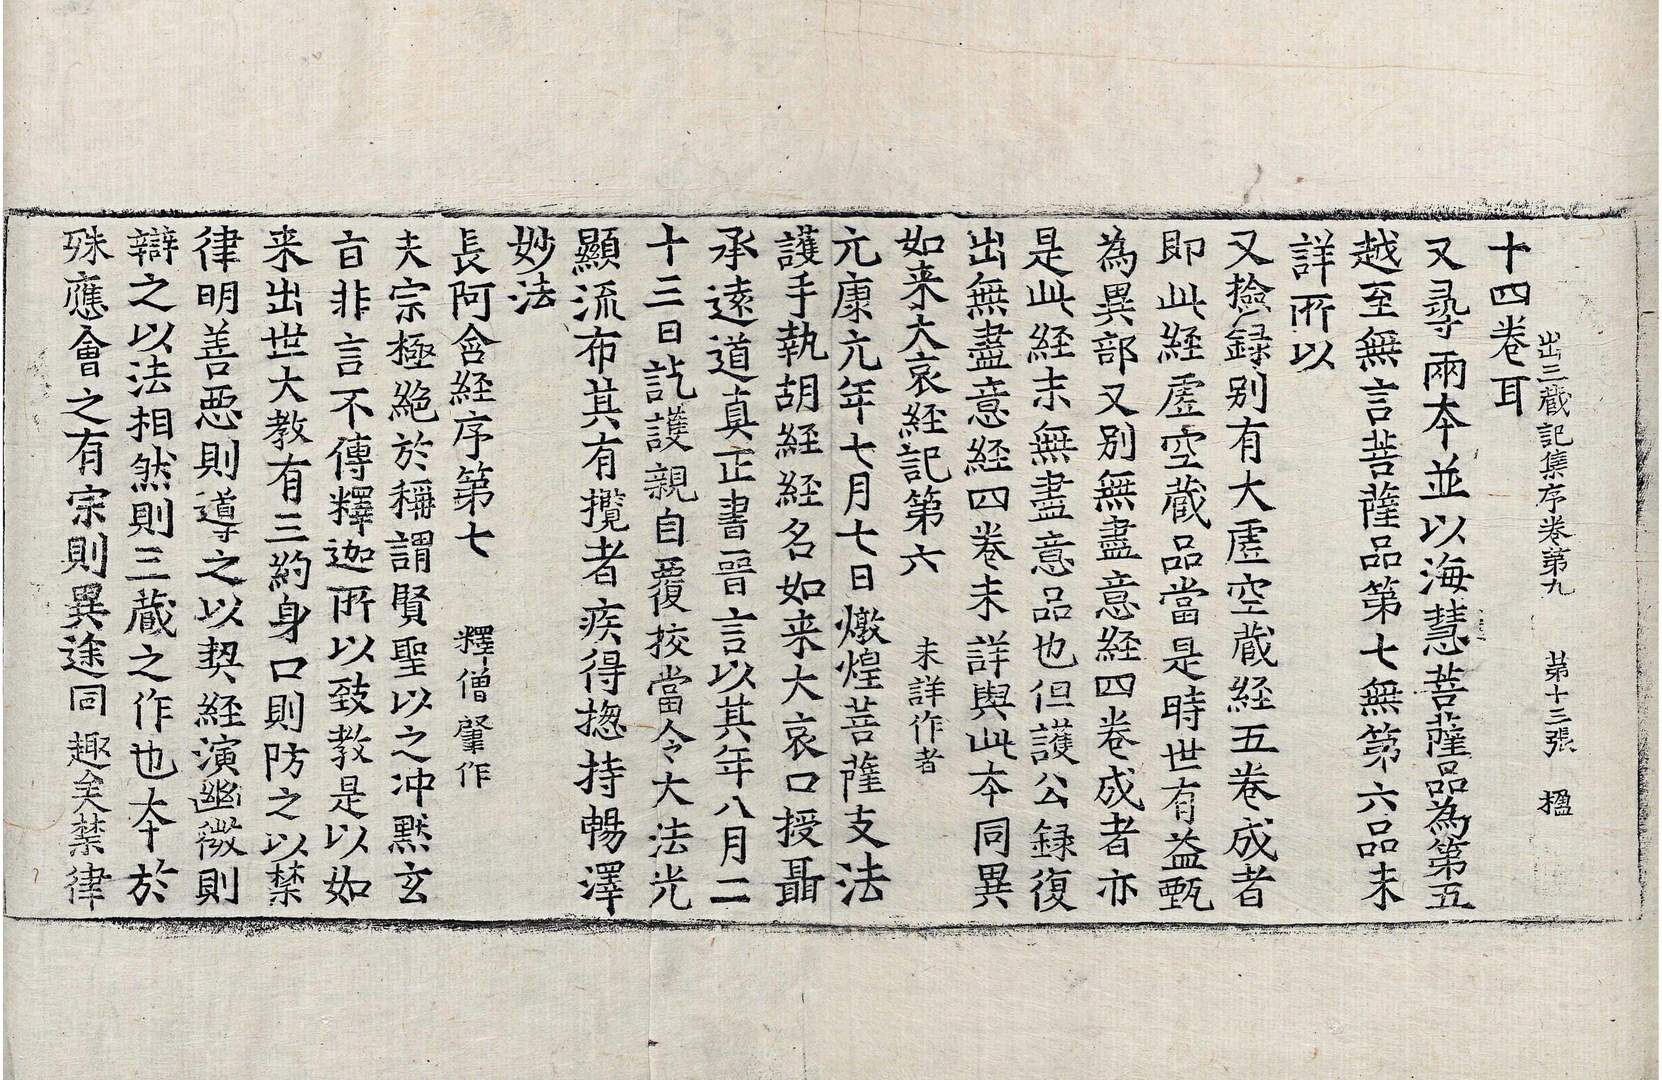 出三藏記集序卷第九 第十三張 楹
十四卷耳
又尋兩本並以海慧菩薩品為第五
越至無言菩薩品第七無第六品未
詳所以
又撿錄別有大虛空藏經五卷成者
即此經虛空藏品當是時世有益甄
為異部又別無盡意經四卷成者亦
是此經末無盡意品也但護公錄復
出無盡意經四卷未詳與此本同異
如来大哀經記第六 未詳作者
元康元年七月七日燉煌菩薩支法
護手執胡經經名如来大哀口授聶
承遠道真正書晉言以其年八月二
十三日訖護親自覆挍當令大法光
顯流布其有攬者疾得揔持暢澤
妙法
長阿含經序第七 釋僧肇作
夫宗極絕於稱謂賢聖以之沖默玄
旨非言不傳釋迦所以致教是以如
来出世大教有三約身口則防之以禁
律明善惡則導之以契經演幽微則
辯之以法相然則三藏之作也本於
殊應會之有宗則異途同趣矣禁律